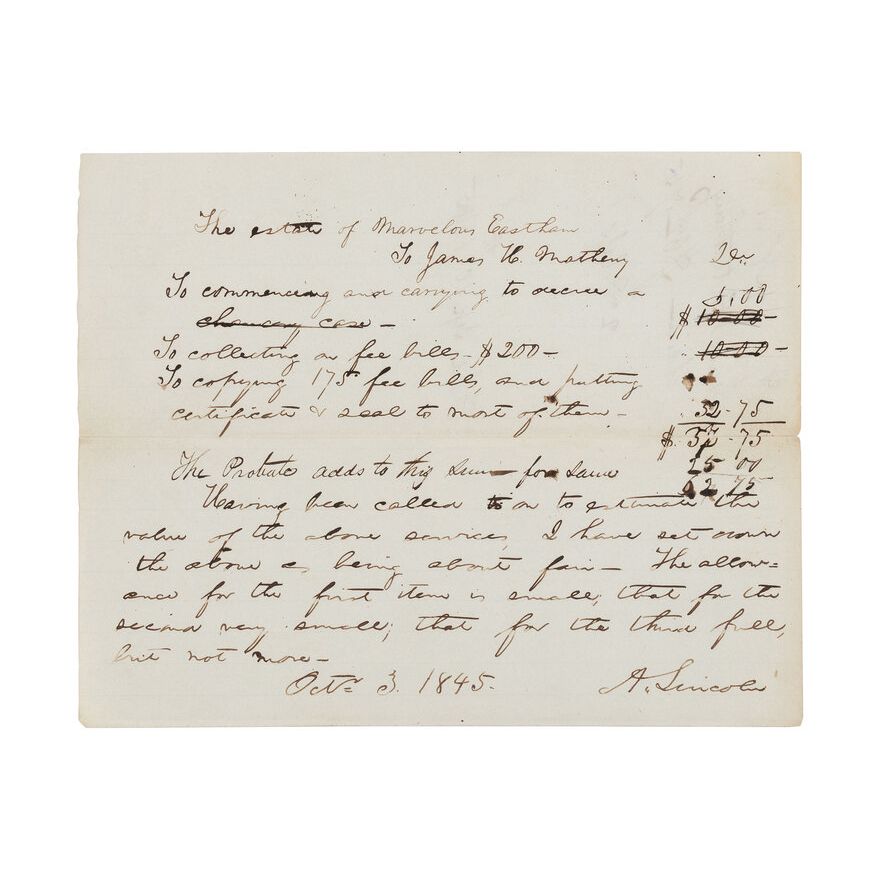 The estate of Marvelous Eastham
To James H. Matheny Dr.
To commencing and carrying to decree a 5.00
chancery case - $ 10-00-
To collecting on fee bills - $200- 10-00-
To copying 175 fee bills, and putting
certificate & seal to most of them - 32-75
$. 52-75
The Probate adds to this sum for same 25 00
62 75
Having been called to on to estimate the
value of the above services, I have set down
the above as being about fair - The allow=
ance for the first item is small; that for the
second very small; that for the third full,
but not more -
Octr. 3. 1845. A. Lincoln